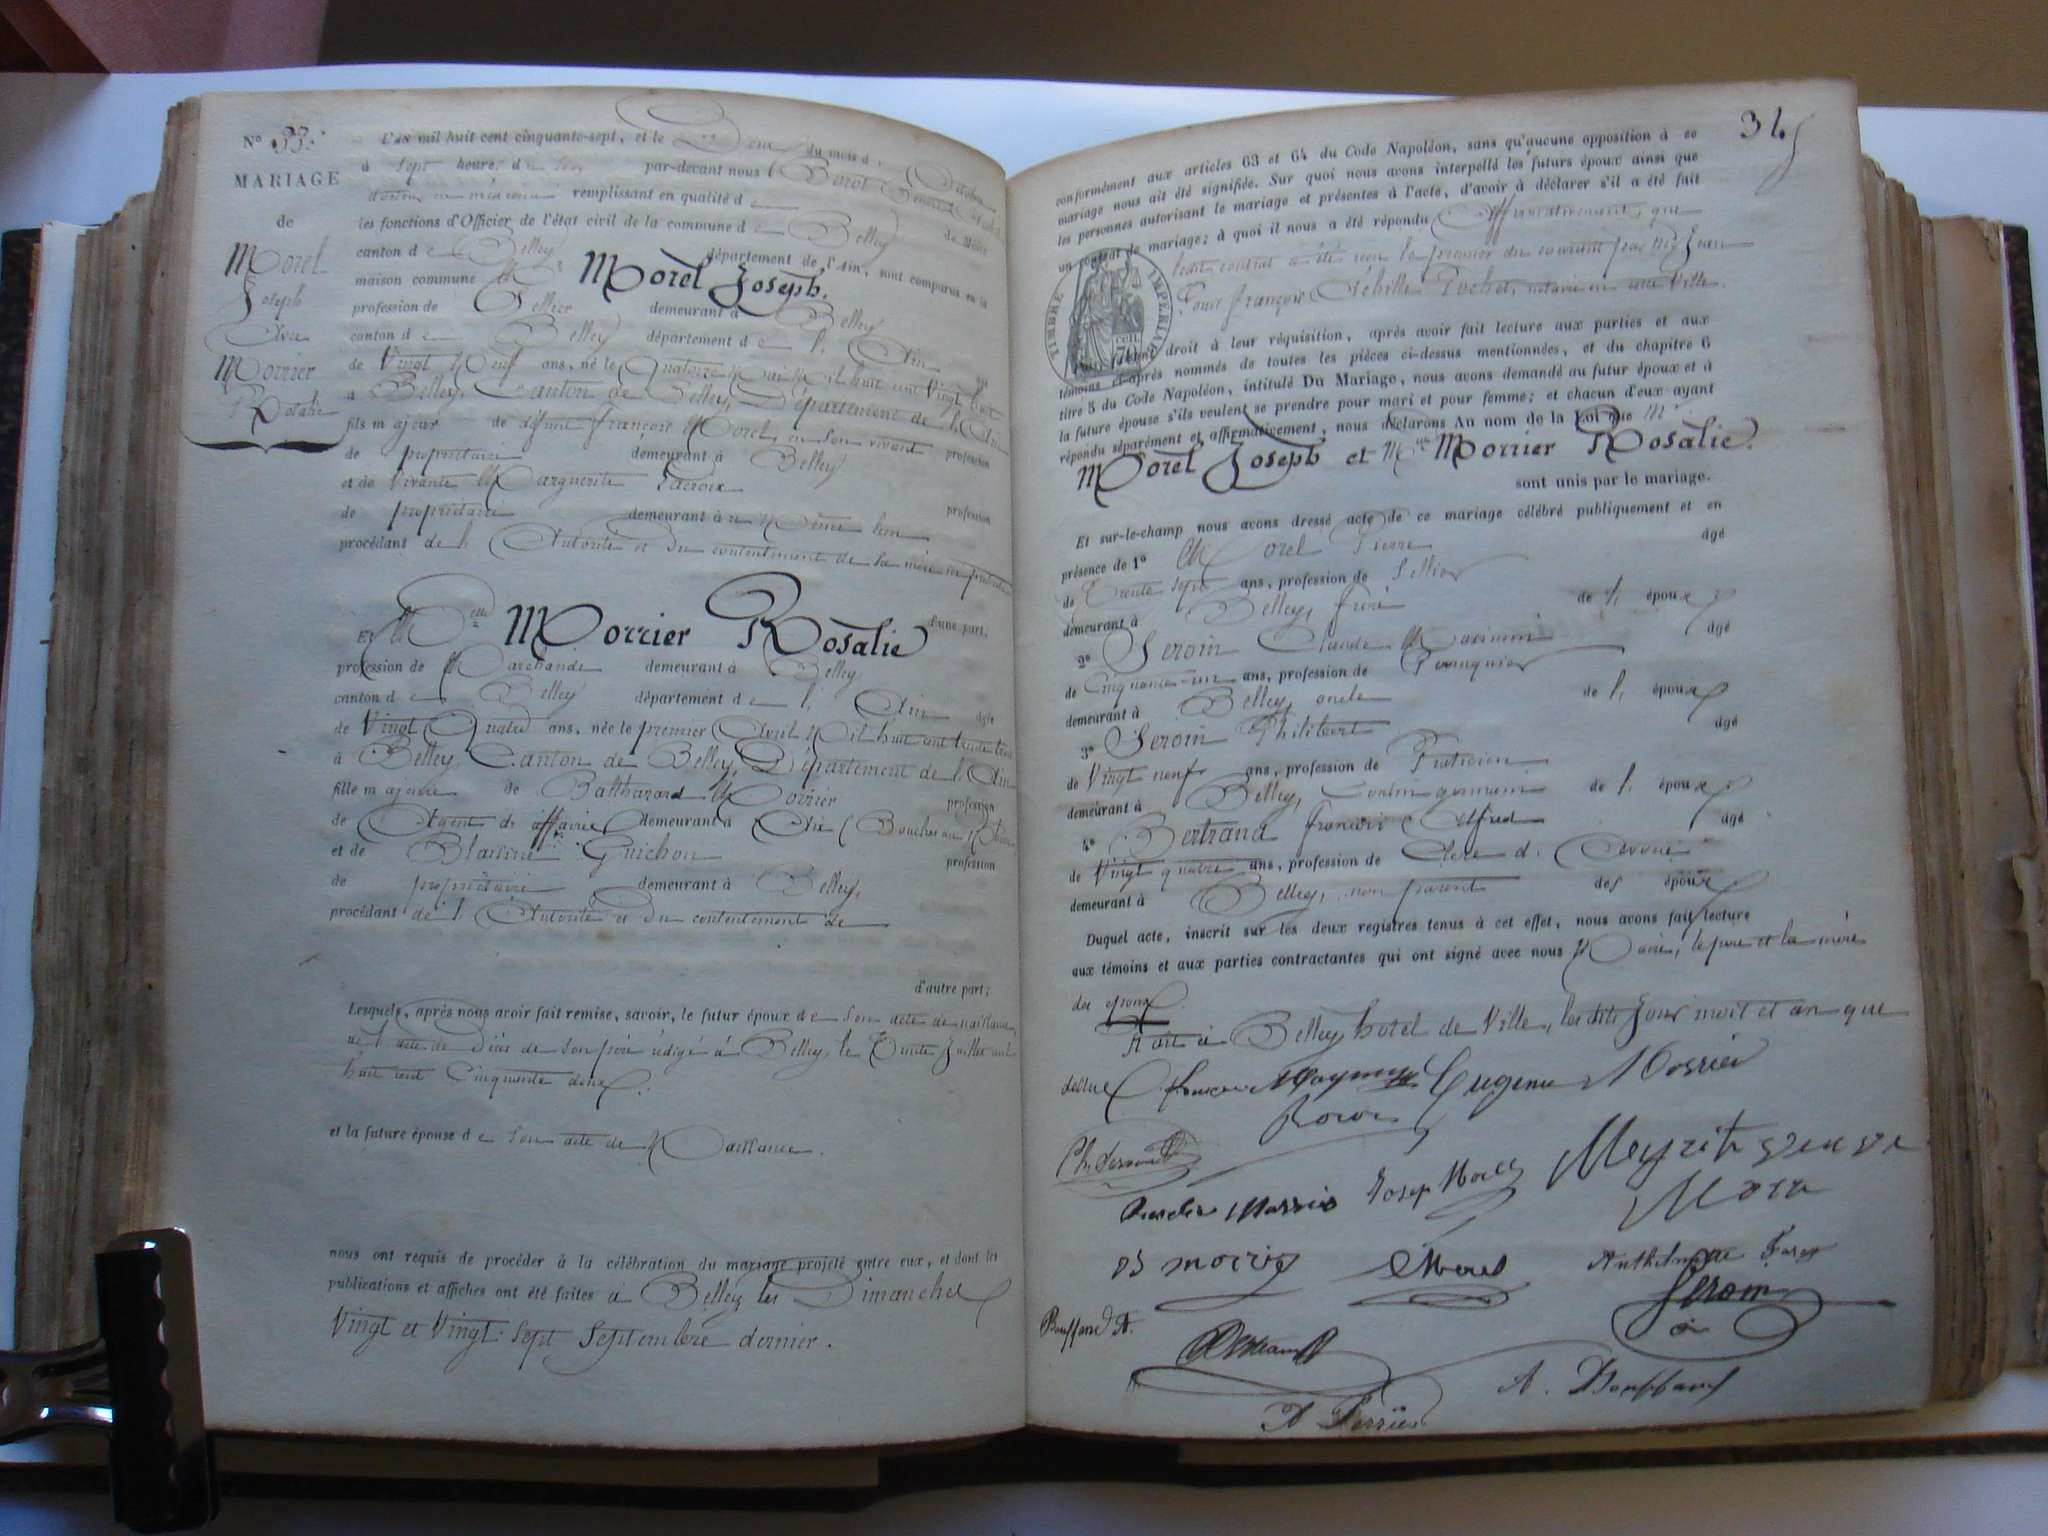 N° 33.
MARIAGE
de
Morel
Joseph
Avec
Morrier
Rosalie
L'an mil huit cent cinquante-sept, et le Deux du mois d'Octobre
à sept heures du soir, par-devant nous
docteur en médecine remplissant en qualité de Maire
les fonctions d'Officier de l'état civil de la commune de Belley
canton de Belley département de l'Ain, sont comparus en la
maison commune Mr Morel Joseph.
profession de Sellier demeurant à Belley
canton de Belley département de l'Ain âgé
de Vingt Neuf ans, né le Quatorze Mai Mil huit cent Vingt huit
à Belley, Canton de Belley, Département de l'Ain
fils majeur de défunt françois Morel, en son vivant profession
de propriétaire demeurant à Belley
et de vivante Marguerite Lacroix profession
de propriétaire demeurant à
procédant de l'Autorité et du contentement de sa mère ici présente
d'une part.
Et Melle Morrier Rosalie
profession de Marchande demeurant à Belley
canton de Belley département de l'Ain âgée
de Vingt Quatre ans, née le premier Avril Mil huit cent trente trois
à Belley, Canton de Belley, Département de l'Ain
fille majeure de Balthazard Morrier profession
de Agent d'affaires demeurant à Aix (Bouches du Rhône
et de Blandine Guichon profession
de propriétaire demeurant à Belley,
procédant de l'Autorité et du contentement de
d'autre part;
Lesquels, après nous avoir fait remise, savoir, le futur époux de son acte de naissance,
de l'acte de Décès de son père rédigé à Belley, le Trente Juillet mil
huit cent Cinquante deux.
et la future épouse de son acte de Naissance.
nous ont requis de procéder à la célébration du mariage projeté entre eux, et dont les
publications et affiches ont été faites à Belley les Dimanches
Vingt et Vingt-Sept Septembre dernier.
34
conformément aux articles 63 et 64 du Code Napoléon, sans qu'aucune opposition à ce
mariage nous ait été signifiée. Sur quoi nous avons interpellé les futurs époux ainsi que
les personnes autorisant le mariage et présentes à l'acte, d'avoir à déclarer s'il a été fait
un contrat de mariage; à quoi il nous a été répondu Affirmativement, que
ledit contrat a été reçu le premier du courant par Me Jean
Louis françois Achille Rochet, notaire en cette Ville.
TIMBRE IMPERIAL
droit à leur réquisition, après avoir fait lecture aux parties et aux
témoins ci-après nommés de toutes les pièces ci-dessus mentionnées, et du chapitre 6
titre 5 du Code Napoléon, intitulé Du Mariage, nous avons demandé au futur époux et à
la future épouse s'ils veulent se prendre pour mari et pour femme; et chacun d'eux ayant
répondu séparément et affirmativement, nous déclarons Au nom de la Loi que Mr
Morel Joseph et Melle Morrier Rosalie.
sont unis par le mariage.
Et sur-le-champ nous avons dressé acte de ce mariage célébré publiquement et en
présence de 1° Morel Pierre âgé
de Trente sept ans, profession de Sellier
demeurant à Belley, frère de l'époux
2° Seroin Claude Maximin âgé
de Cinquante-un ans, profession de Perruquier
demeurant à Belley, oncle de l'époux
3° Seroin Philibert âgé
de Vingt neuf ans, profession de Praticien
demeurant à Belley, Cousin germain de l'époux
4° Bertrand françois Alfred âgé
de Vingt quatre ans, profession de Clerc d'Avoué
demeurant à Belley, non parent des époux
Duquel acte, inscrit sur les deux registres tenus à cet effet, nous avons fait lecture
aux témoins et aux parties contractantes qui ont signé avec nous Maire, le père et la mère
des époux
Fait à Belley, hôtel de Ville, les dits Jour mois et an que
dessus
Eugenie Morrier
Rosalie Morrier Josep Morel
Morel
Seroin
A. Bouffard
A Perrier